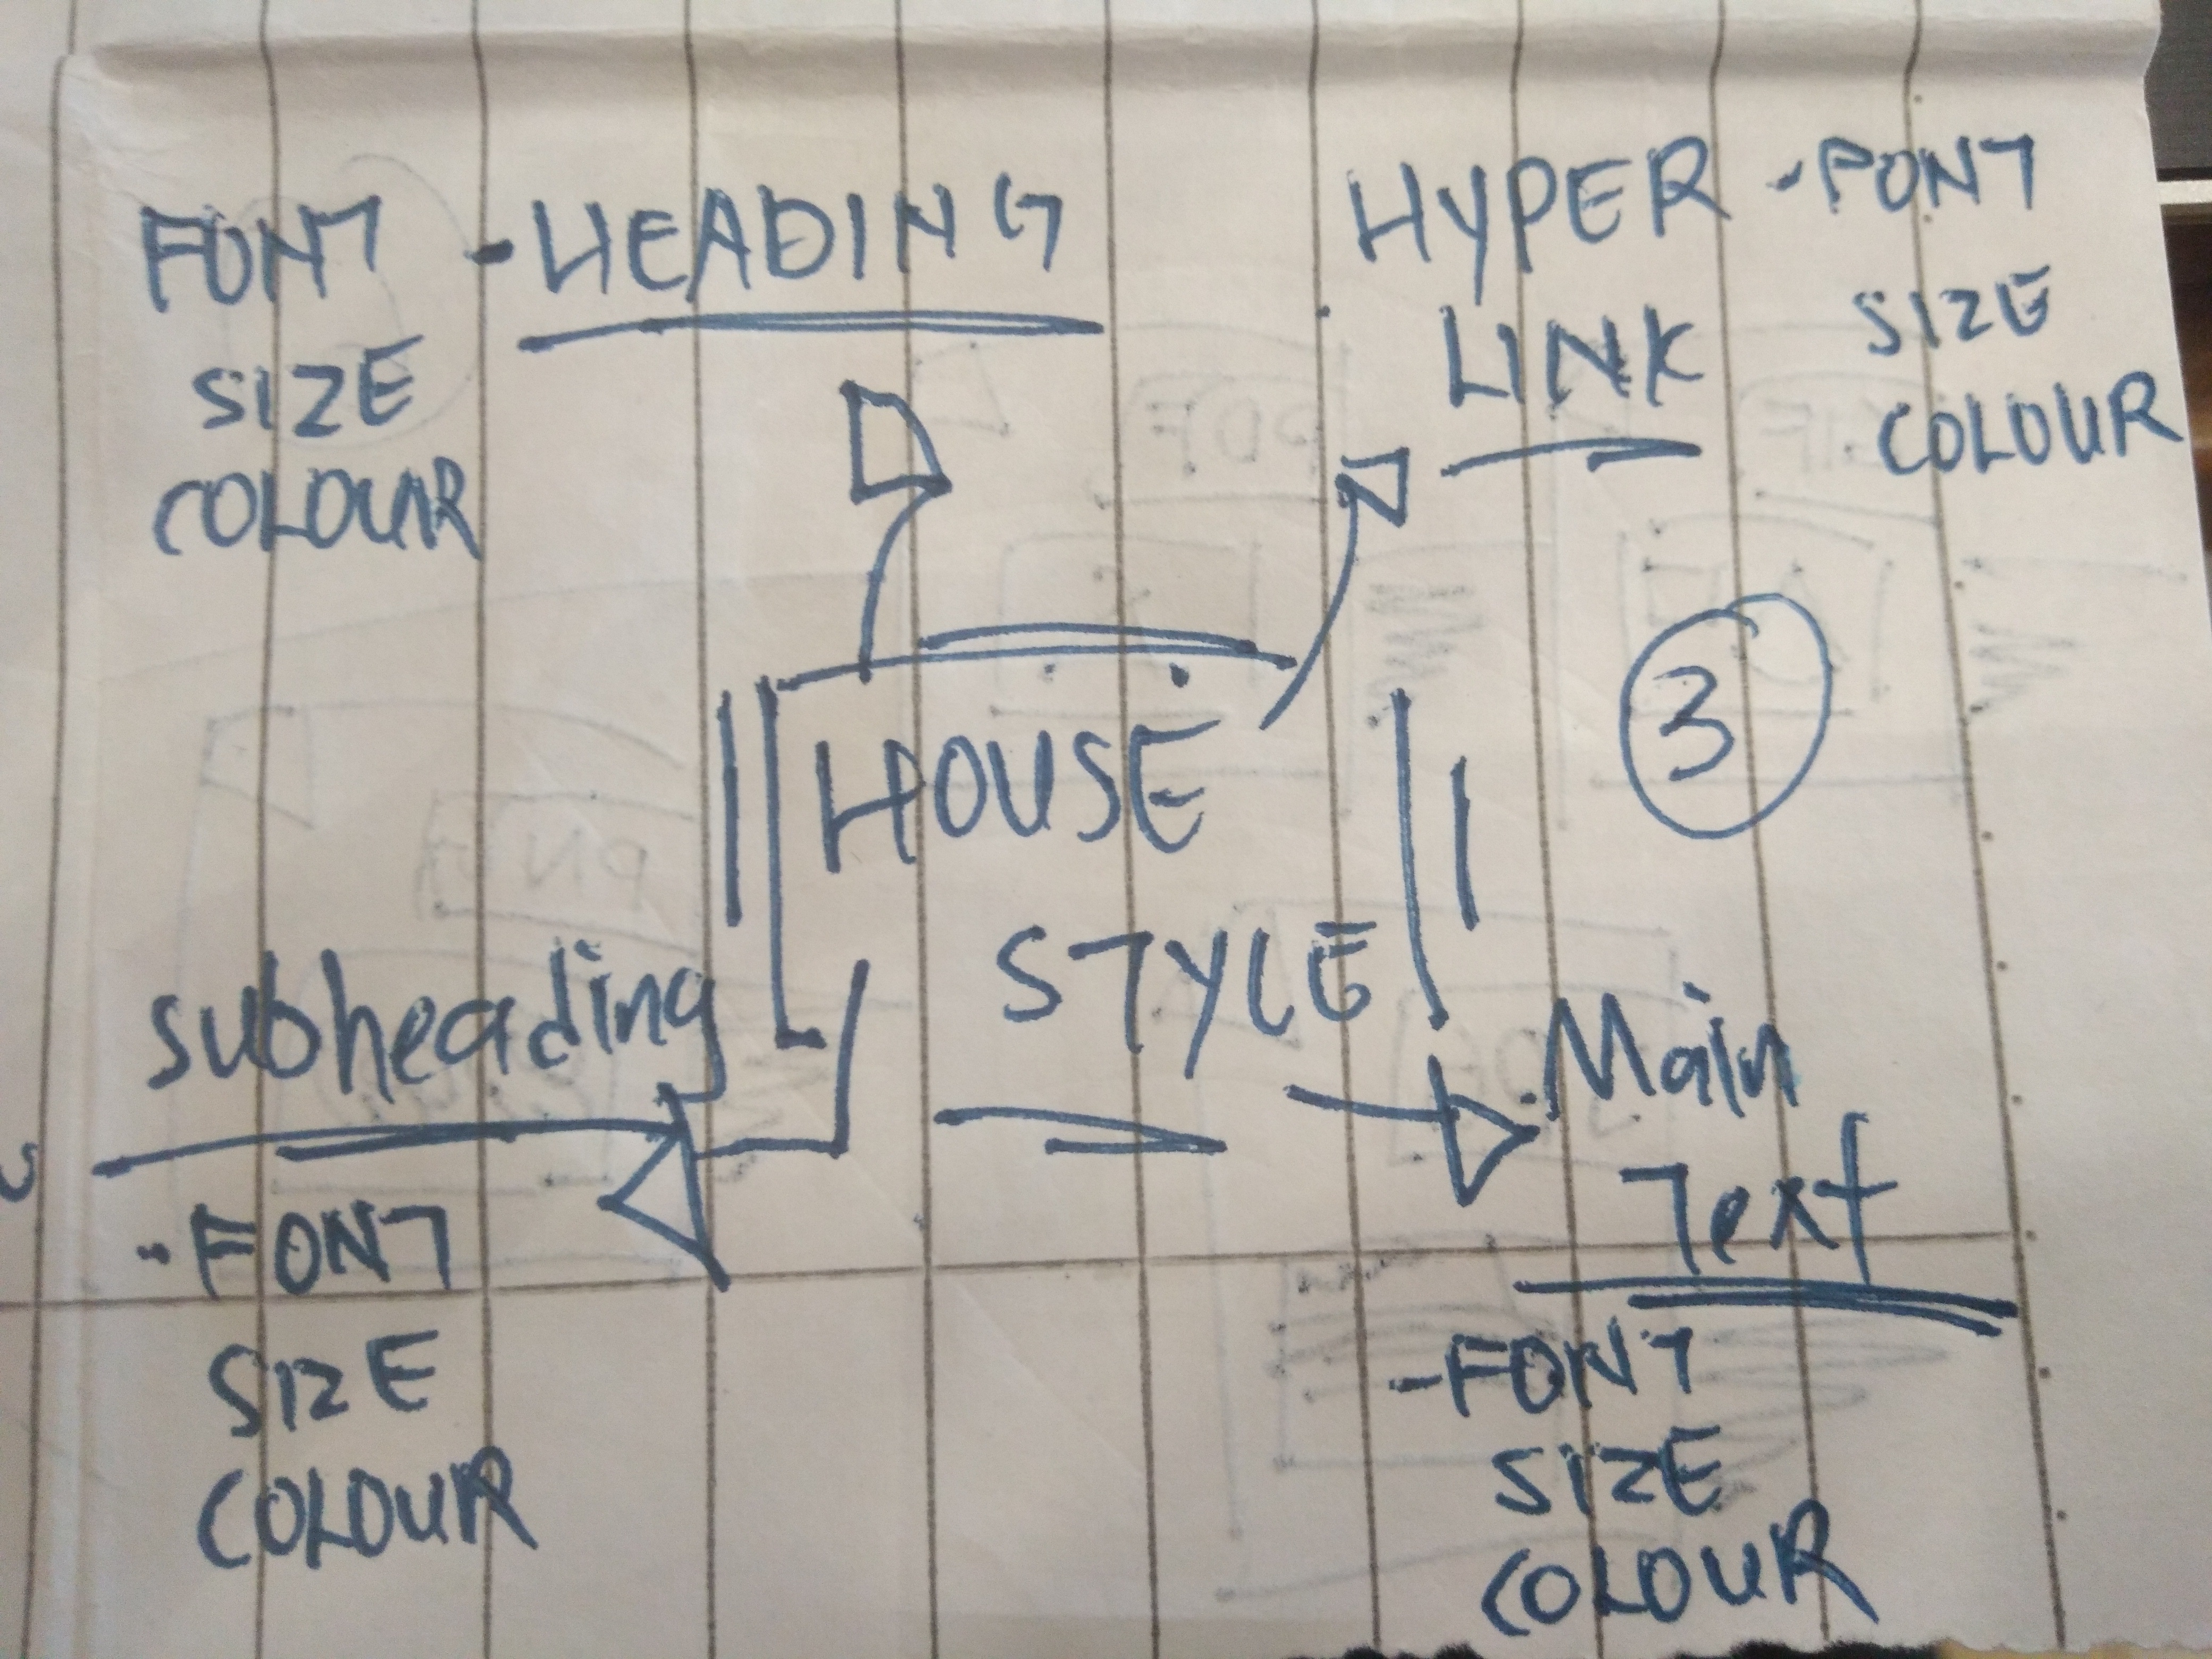 FONT - HEADING
SIZE
COLOUR
HYPER - FONT
LINK SIZE
COLOUR
3
HOUSE
STYLE
subheading
- FONT
SIZE
COLOUR
Main
Text
- FONT
SIZE
COLOUR